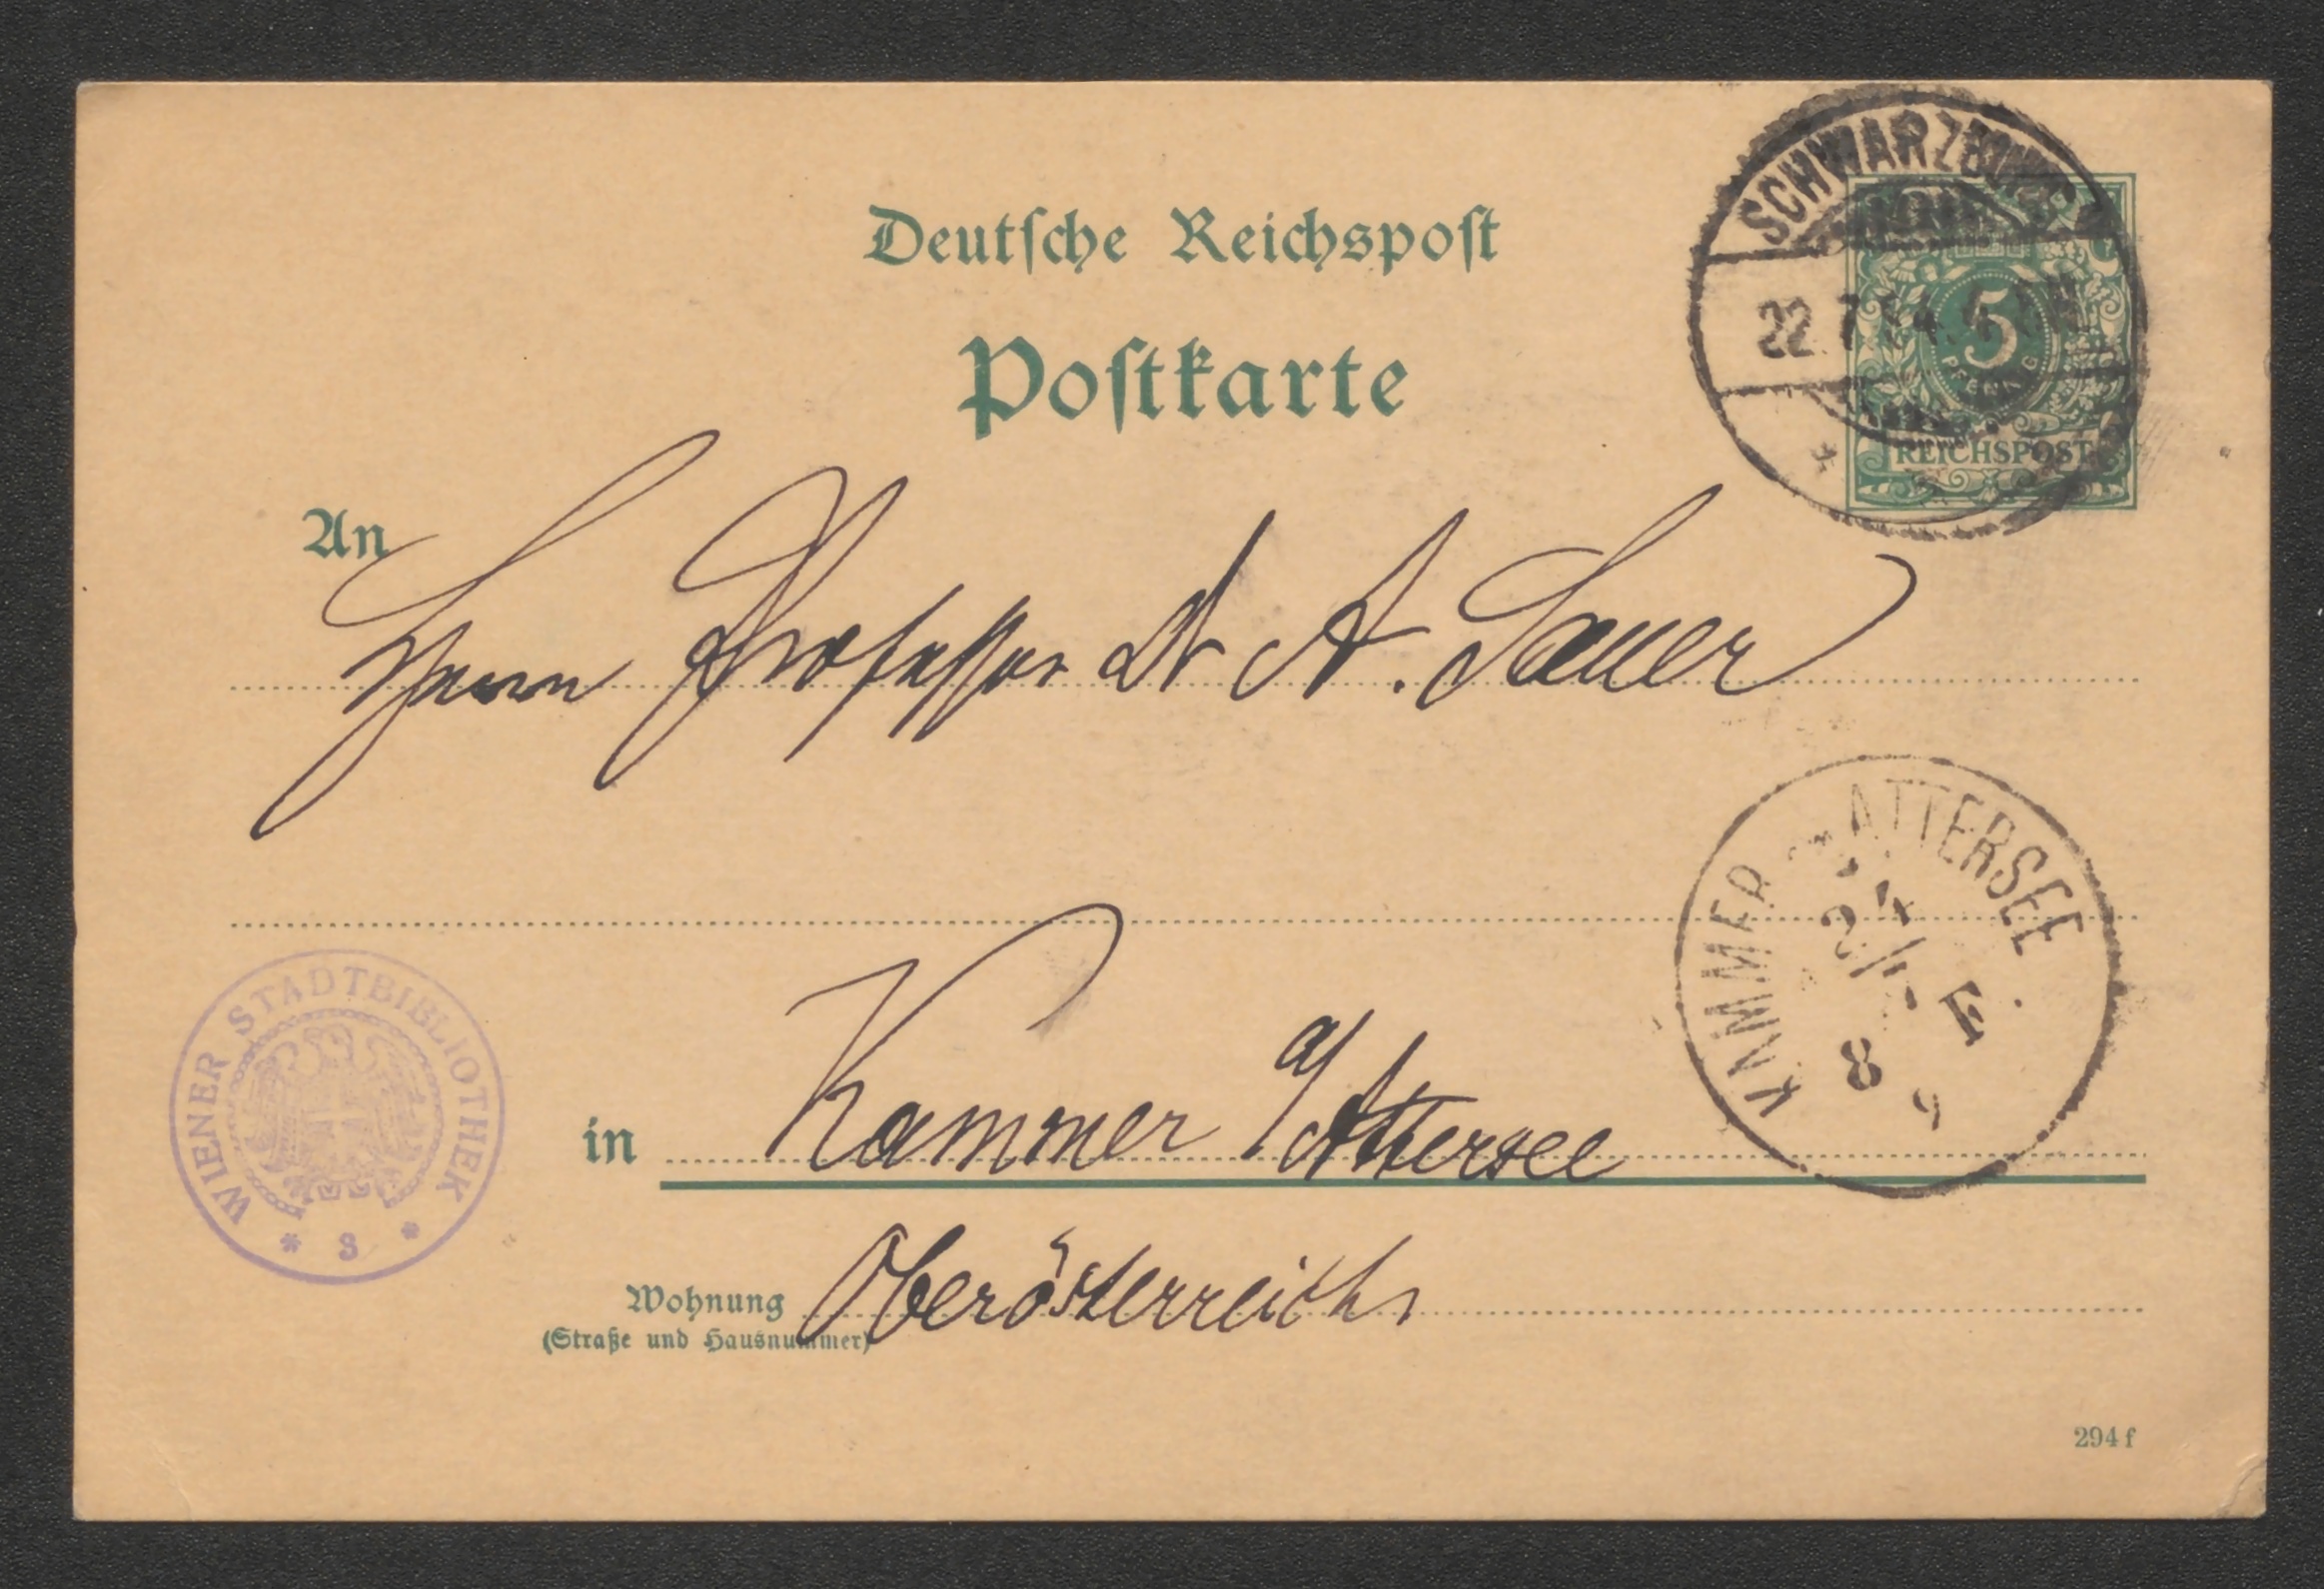 Deutsche Reichspost
Postkarte
SCHWARZBURG
22.7.94.
5
PFENNIG
REICHSPOST
An
Herrn Professor Dr A. Sauer
KAMMER ATTERSEE
in Kammer a/Attersee
WIENER STADTBIBLIOTHEK
* S *
Wohnung Oberösterreich
(Straße und Hausnummer)
294 f